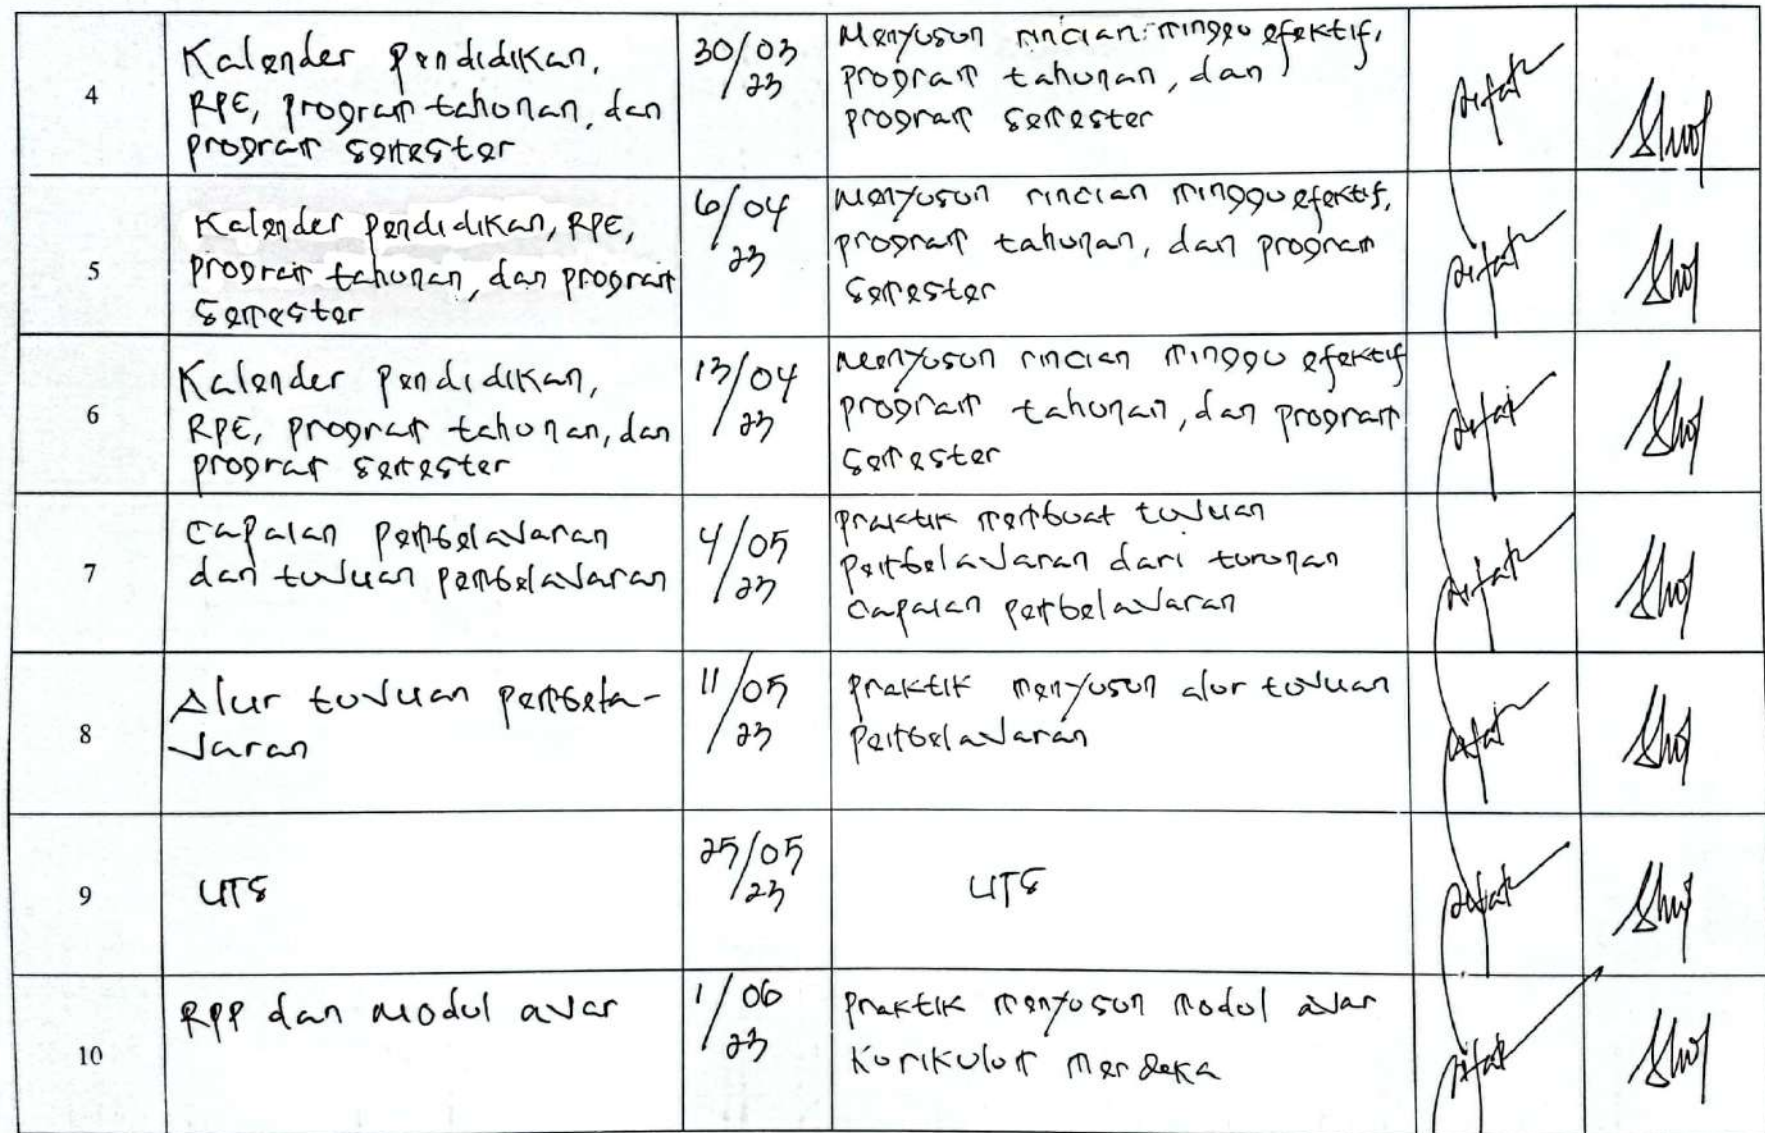 4
Kalender Pendidikan,
RPE, program tahunan, dan
program semester
30/03
/23
Menyusun rincian minggu efektif,
program tahunan, dan
program semester
5
Kalender pendidikan, RPE,
program tahunan, dan program
semester
6/04
23
Menyusun rincian minggu efektif,
program tahunan, dan program
semester
6
Kalender Pendidikan,
RPE, program tahunan, dan
program semester
13/04
/23
Menyusun rincian minggu efektif
program tahunan, dan program
semester
7
Capaian pembelajaran
dan tujuan pembelajaran
4/05
/23
praktik membuat tujuan
pembelajaran dari turunan
capaian pembelajaran
8
Alur tujuan pembela-
jaran
11/05
/23
praktik menyusun alur tujuan
pembelajaran
9
UTS
25/05
/23
UTS
10
RPP dan Modul ajar
1/06
/23
praktik menyusun modul ajar
Kurikulum Merdeka